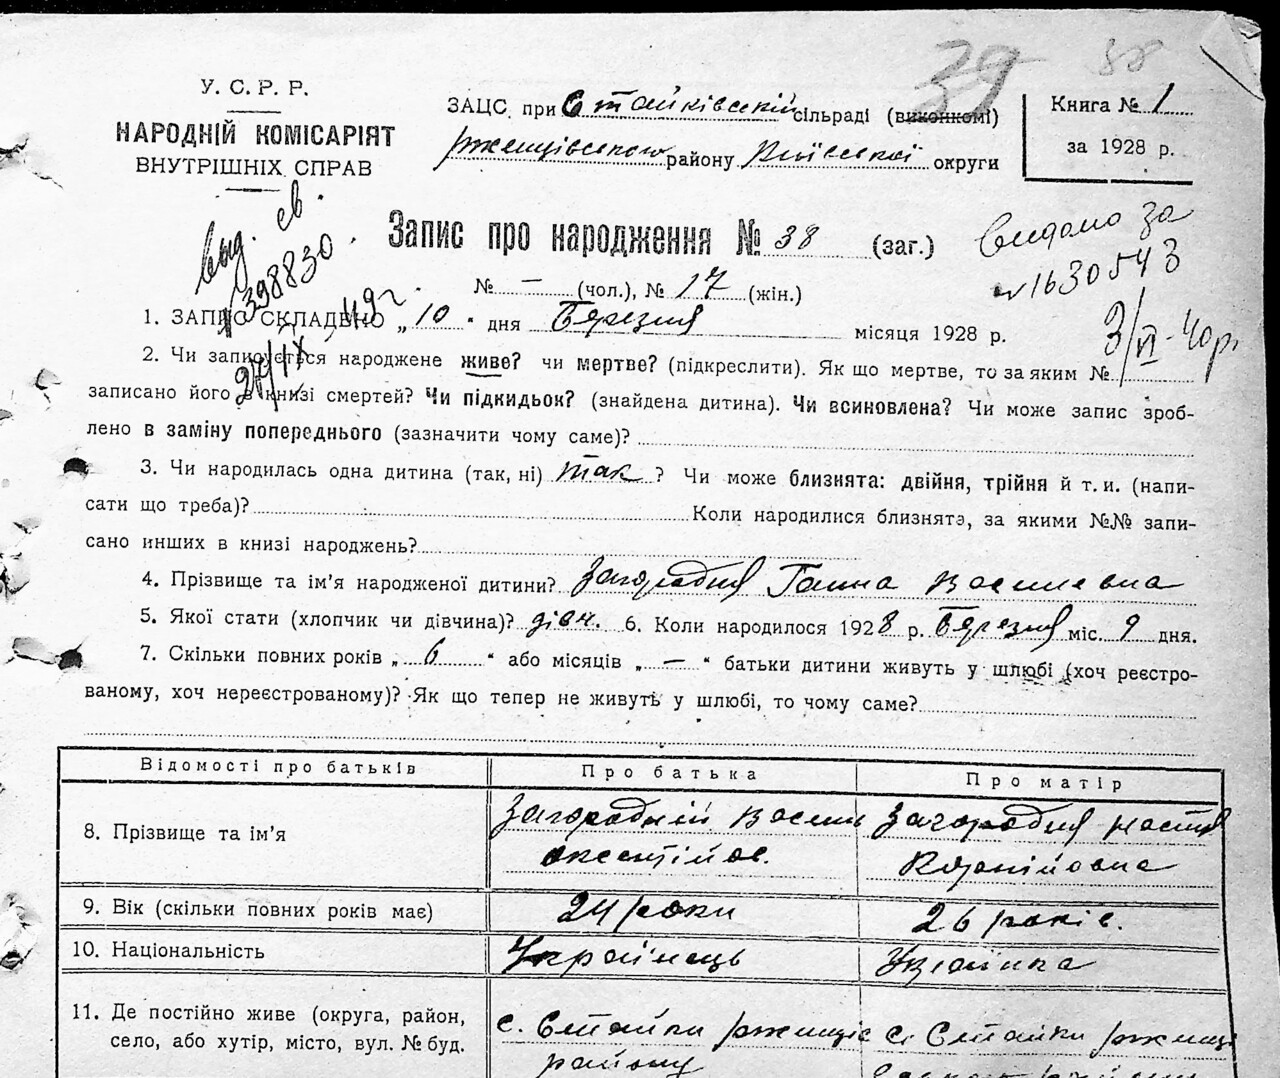 39 38
У. С. Р. Р.
НАРОДНІЙ КОМІСАРІЯТ
ВНУТРІШНІХ СПРАВ
ЗАЦС при Стайківській сільраді (виконкомі)
Ржищівського району Київської округи
Книга № 1
за 1928 р.
Выд. св.
№ 398830
27/IX 49 г.
Запис про народження № 38 (заг.)
№ — (чол.), № 17 (жін.)
Видано за
№ 1630543
3/VI - 40 р.
1. ЗАПИС СКЛАДЕНО „ 10 “ дня Березня місяця 1928 р.
2. Чи записується народжене живе? чи мертве? (підкреслити). Як що мертве, то за яким №
записано його в книзі смертей? Чи підкидьок? (знайдена дитина). Чи всиновлена? Чи може запис зроб-
лено в заміну попереднього (зазначити чому саме)?
3. Чи народилась одна дитина (так, ні) так ? Чи може близнята: двійня, трійня й т. и. (напи-
сати що треба)? Коли народилися близнята, за якими №№ запи-
сано инших в книзі народжень?
4. Прізвище та ім’я народженої дитини? Загородня Ганна Василевна
5. Якої стати (хлопчик чи дівчина)? дівч. 6. Коли народилося 1928 р. Березня міс. 9 дня.
7. Скільки повних років „ 6 “ або місяців „ — “ батьки дитини живуть у шлюбі (хоч реєстро-
ваному, хоч нереєстрованому)? Як що тепер не живуть у шлюбі, то чому саме?
Відомості про батьків Про батька Про матір
8. Прізвище та ім’я Загородній Василь Загородня Настя
Оксентійов. Корнійовна
9. Вік (скільки повних років має) 24 роки 26 років.
10. Національність Українець Українка
11. Де постійно живе (округа, район, с. Стайки Ржищів с. Стайки Ржищів
село, або хутір, місто, вул. № буд. району